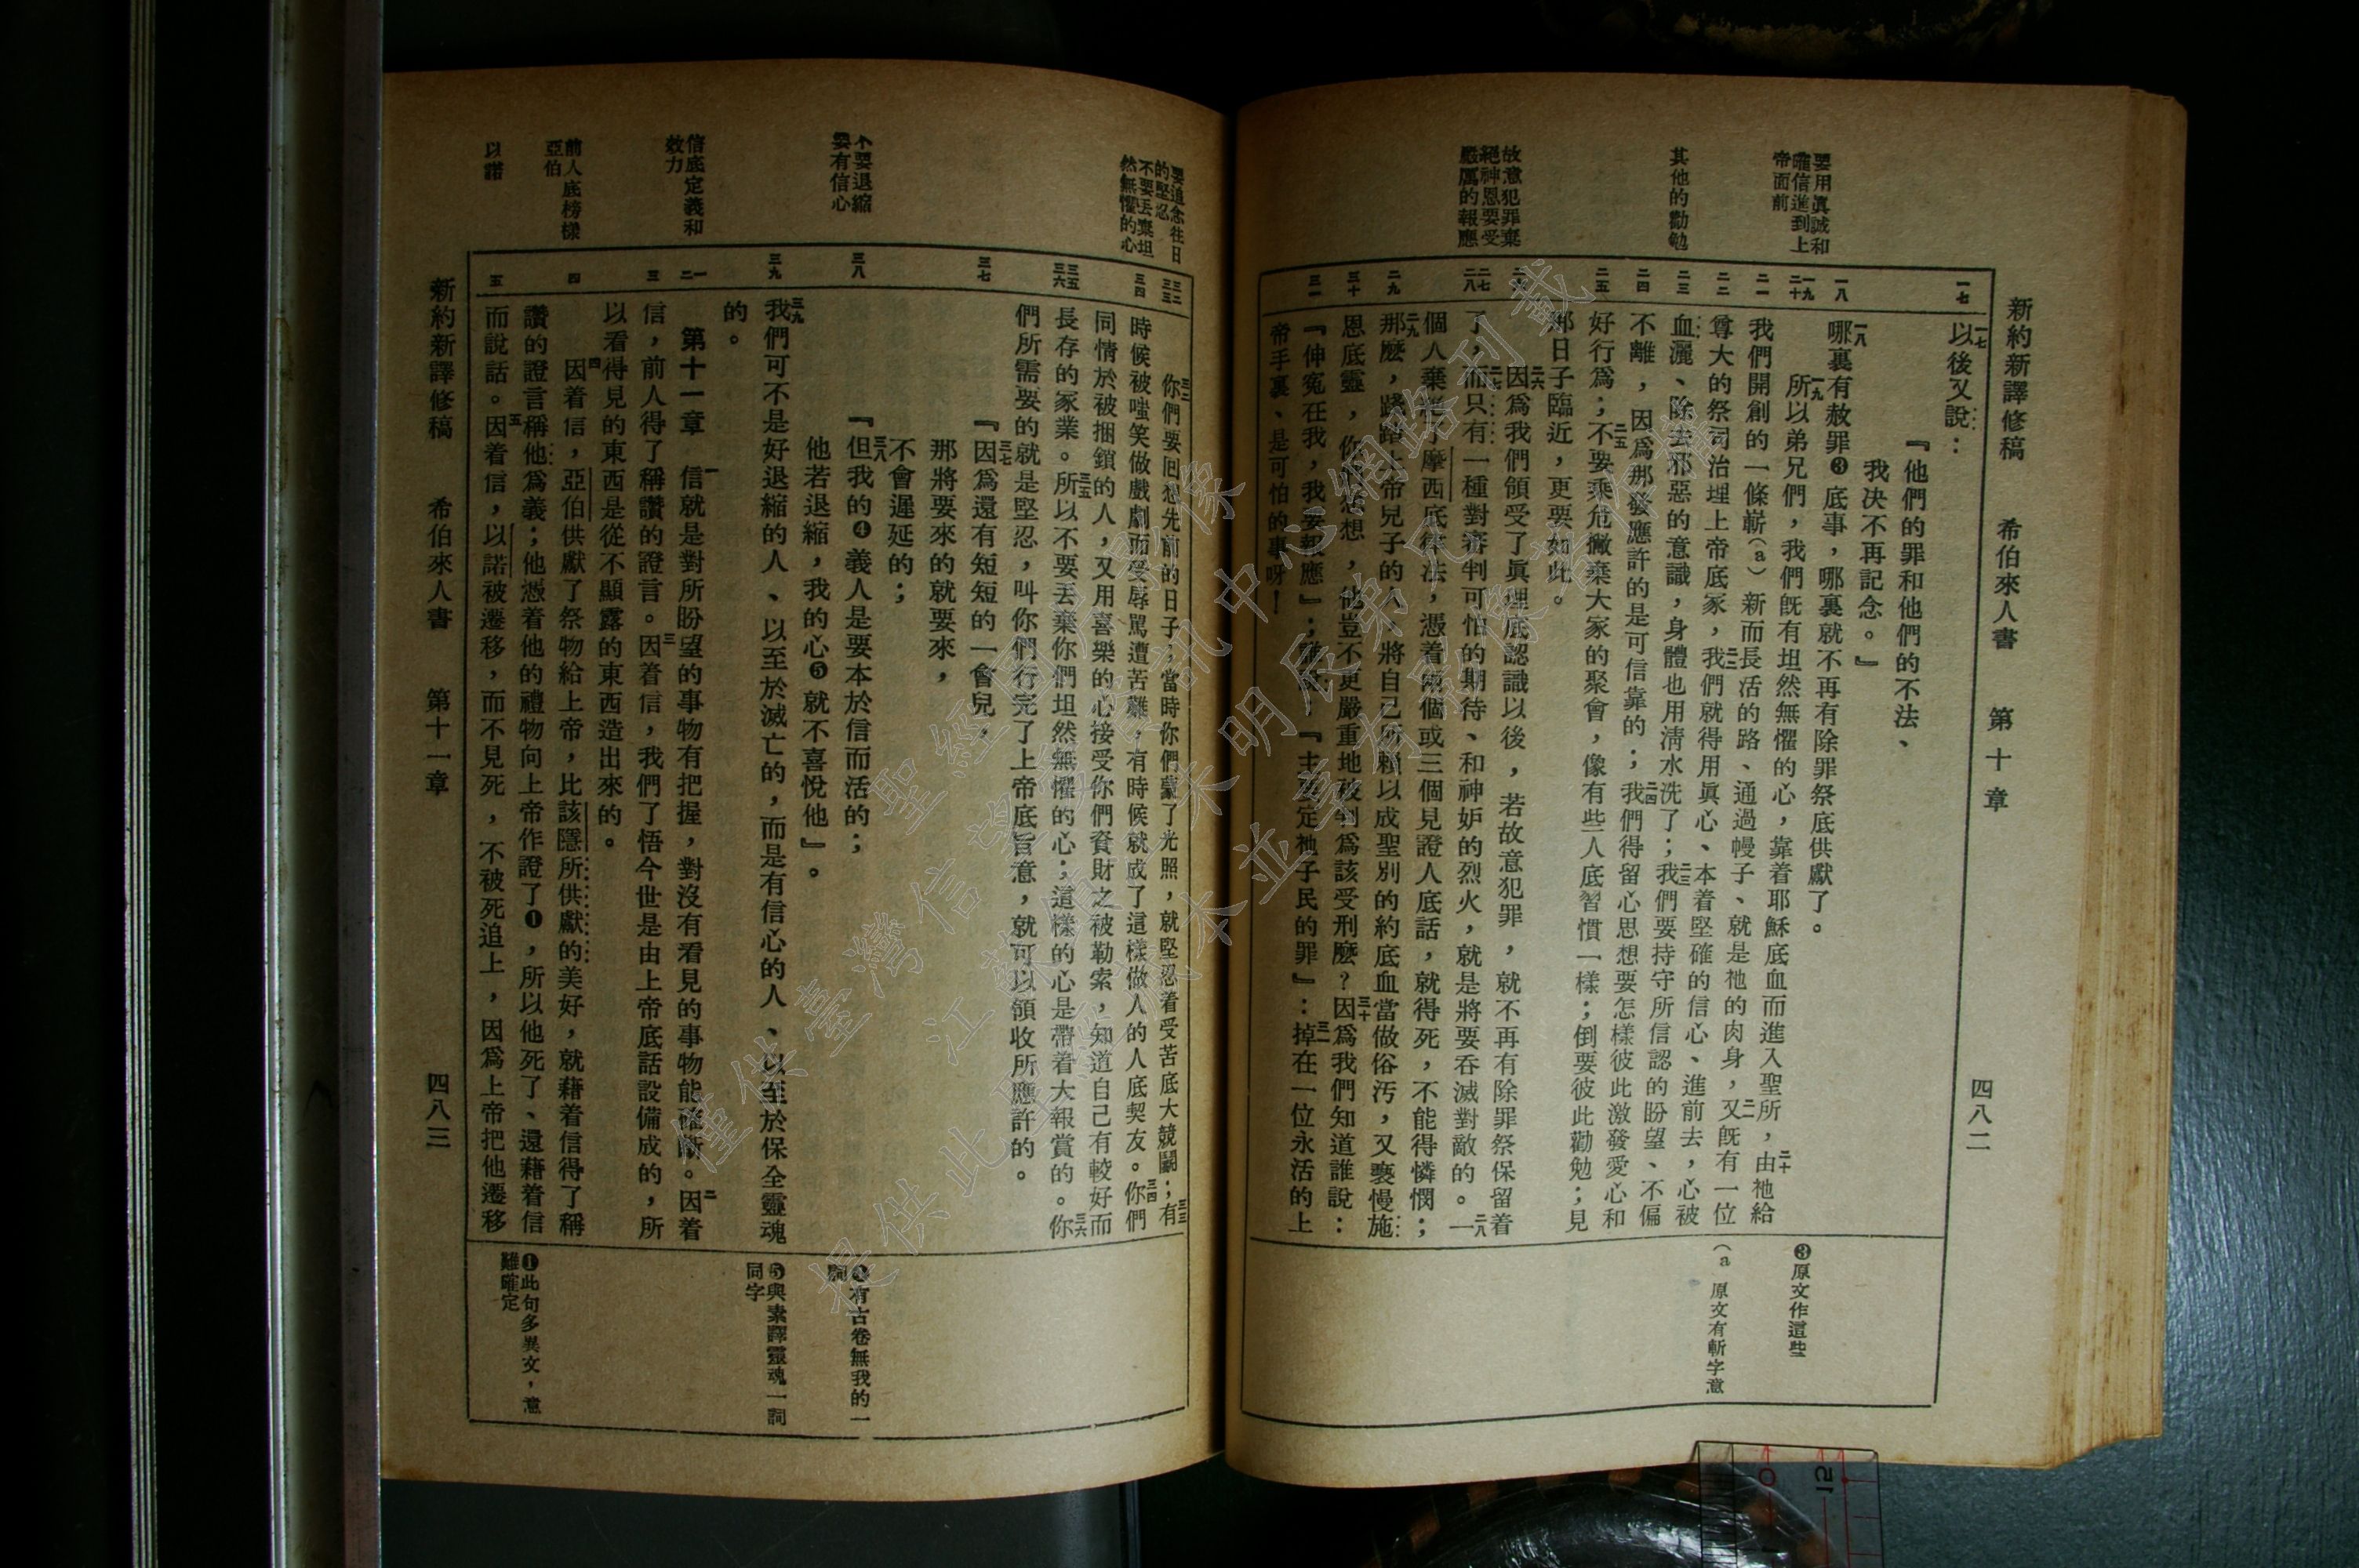 新約新譯修稿　希伯來人書　第十章　四八二
要用眞誠和
確信進到上
帝面前
其他的勸勉
故意犯罪棄
絕神恩要受
嚴厲的報應
一七
一八
一九
二十
二一
二二
二三
二四
二五
二六
二七
二八
二九
三十
三一
一七以後又說：
『他們的罪和他們的不法、
我決不再記念。』
一八哪裏有赦罪❸底事，哪裏就不再有除罪祭底供獻了。
一九所以弟兄們，我們旣有坦然無懼的心，靠着耶穌底血而進入聖所，二十由祂給
我們開創的一條嶄(a)新而長活的路、通過幔子、就是祂的肉身，二一又旣有一位
尊大的祭司治理上帝底家，二二我們就得用眞心、本着堅確的信心、進前去，心被
血灑、除去邪惡的意識，身體也用淸水洗了；二三我們要持守所信認的盼望、不偏
不離，因爲那發應許的是可信靠的；二四我們得留心思想要怎樣彼此激發愛心和
好行爲；二五不要乘危撇棄大家的聚會，像有些人底習慣一樣；倒要彼此勸勉；見
那日子臨近，更要如此。
二六因爲我們領受了眞理底認識以後，若故意犯罪，就不再有除罪祭保留着
了，二七而只有一種對審判可怕的期待、和神妒的烈火，就是將要吞滅對敵的。二八一
個人棄絕了摩西底律法，憑着兩個或三個見證人底話，就得死，不能得憐憫；
二九那麽，踐踏上帝兒子的人、將自己所賴以成聖別的約底血當做俗汚，又褻慢施
恩底靈，你們想想，他豈不更嚴重地被判爲該受刑麽？三十因爲我們知道誰說：
『伸冤在我，我要報應』；誰說：『主要定祂子民的罪』：三一掉在一位永活的上
帝手裏、是可怕的事呀！
❸原文作這些
(a 原文有斬字意
要追念往日
的堅忍
不要丟棄坦
然無懼的心
不要退縮
要有信心
信底定義和
效力
前人底榜樣
亞伯
以諾
三二
三三
三四
三五
三六
三七
三八
三九
一
二
三
四
五
三二你們要回想先前的日子；當時你們蒙了光照，就堅忍着受苦底大競鬭；三三有
時候被嗤笑做戲劇而受辱駡遭苦難，有時候就成了這樣做人的人底契友。三四你們
同情於被捆鎖的人，又用喜樂的心接受你們資財之被勒索，知道自己有較好而
長存的家業。三五所以不要丟棄你們坦然無懼的心；這樣的心是帶着大報賞的。三六你
們所需要的就是堅忍，叫你們行完了上帝底旨意，就可以領收所應許的。
『三七因爲還有短短的一會兒，
那將要來的就要來，
不會遲延的；
『三八但我的❹義人是要本於信而活的；
他若退縮，我的心❺就不喜悅他』。
三九我們可不是好退縮的人、以至於滅亡的，而是有信心的人、以至於保全靈魂
的。
第十一章　一信就是對所盼望的事物有把握，對沒有看見的事物能確斷。二因着
信，前人得了稱讚的證言。三因着信，我們了悟今世是由上帝底話設備成的，所
以看得見的東西是從不顯露的東西造出來的。
四因着信，亞伯供獻了祭物給上帝，比該隱所供獻的美好，就藉着信得了稱
讚的證言稱他爲義；他憑着他的禮物向上帝作證了❶，所以他死了、還藉着信
而說話。五因着信，以諾被遷移，而不見死，不被死追上，因爲上帝把他遷移
❹有古卷無我的一
詞
❺與素譯靈魂一詞
同字
❶此句多異文，意
難確定
新約新譯修稿　希伯來人書　第十一章　四八三